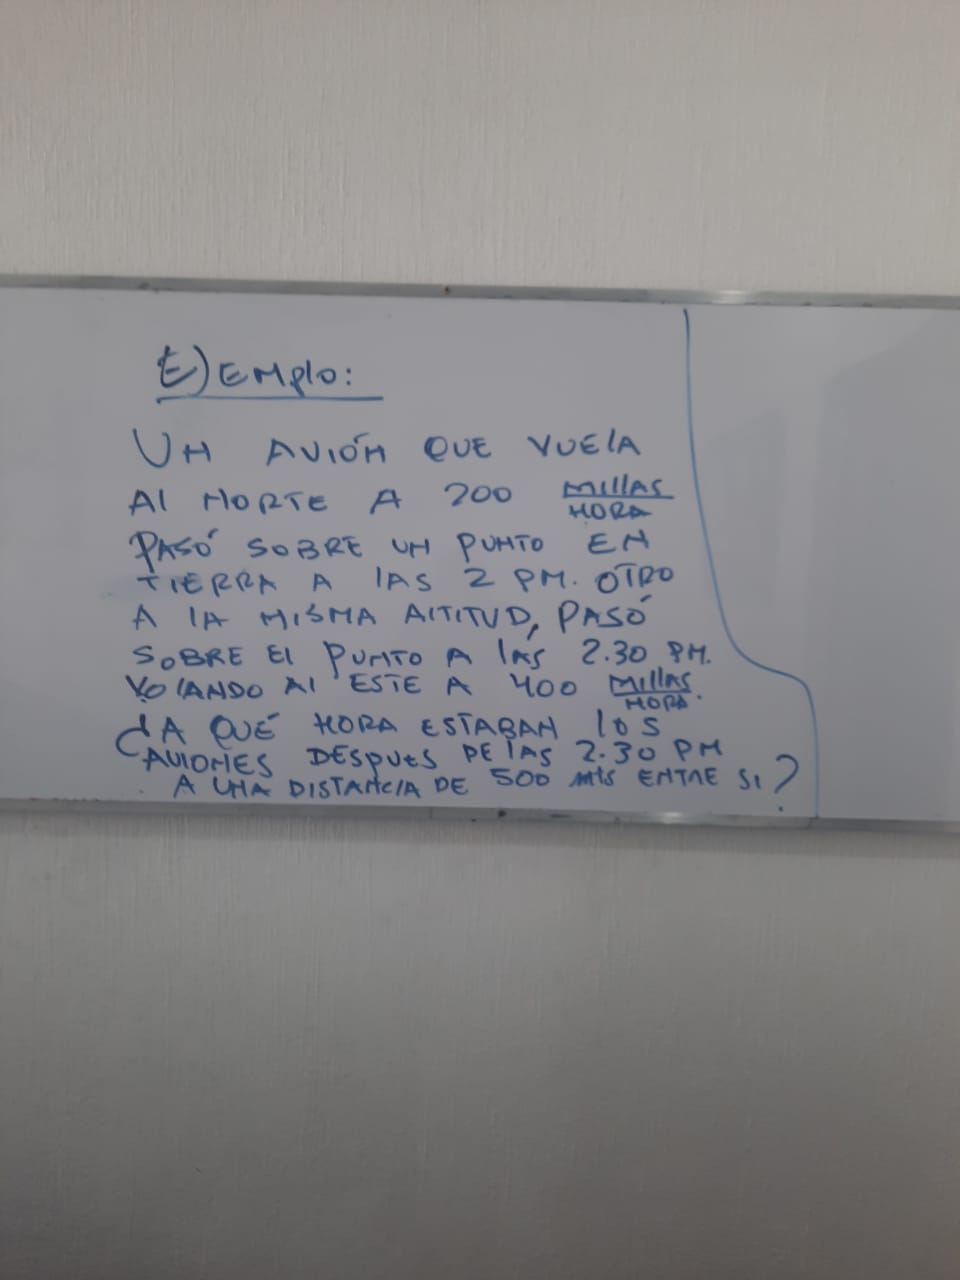 Ejemplo:
UN AVIÓN QUE VUELA
Al NORTE A 200 MILLAS/HORA
PASÓ SOBRE UN PUNTO EN
TIERRA A lAS 2 PM. OTRO
A lA MISMA AlTITUD, PASÓ
SOBRE El PUNTO A lAS 2.30 PM.
VOlANDO Al ESTE A 400 MILLAS/HORA.
¿A QUÉ HORA ESTABAN lOS
AVIONES DESPUES DE lAS 2.30 PM
A UNA DISTANCIA DE 500 Mls ENTRE SI?